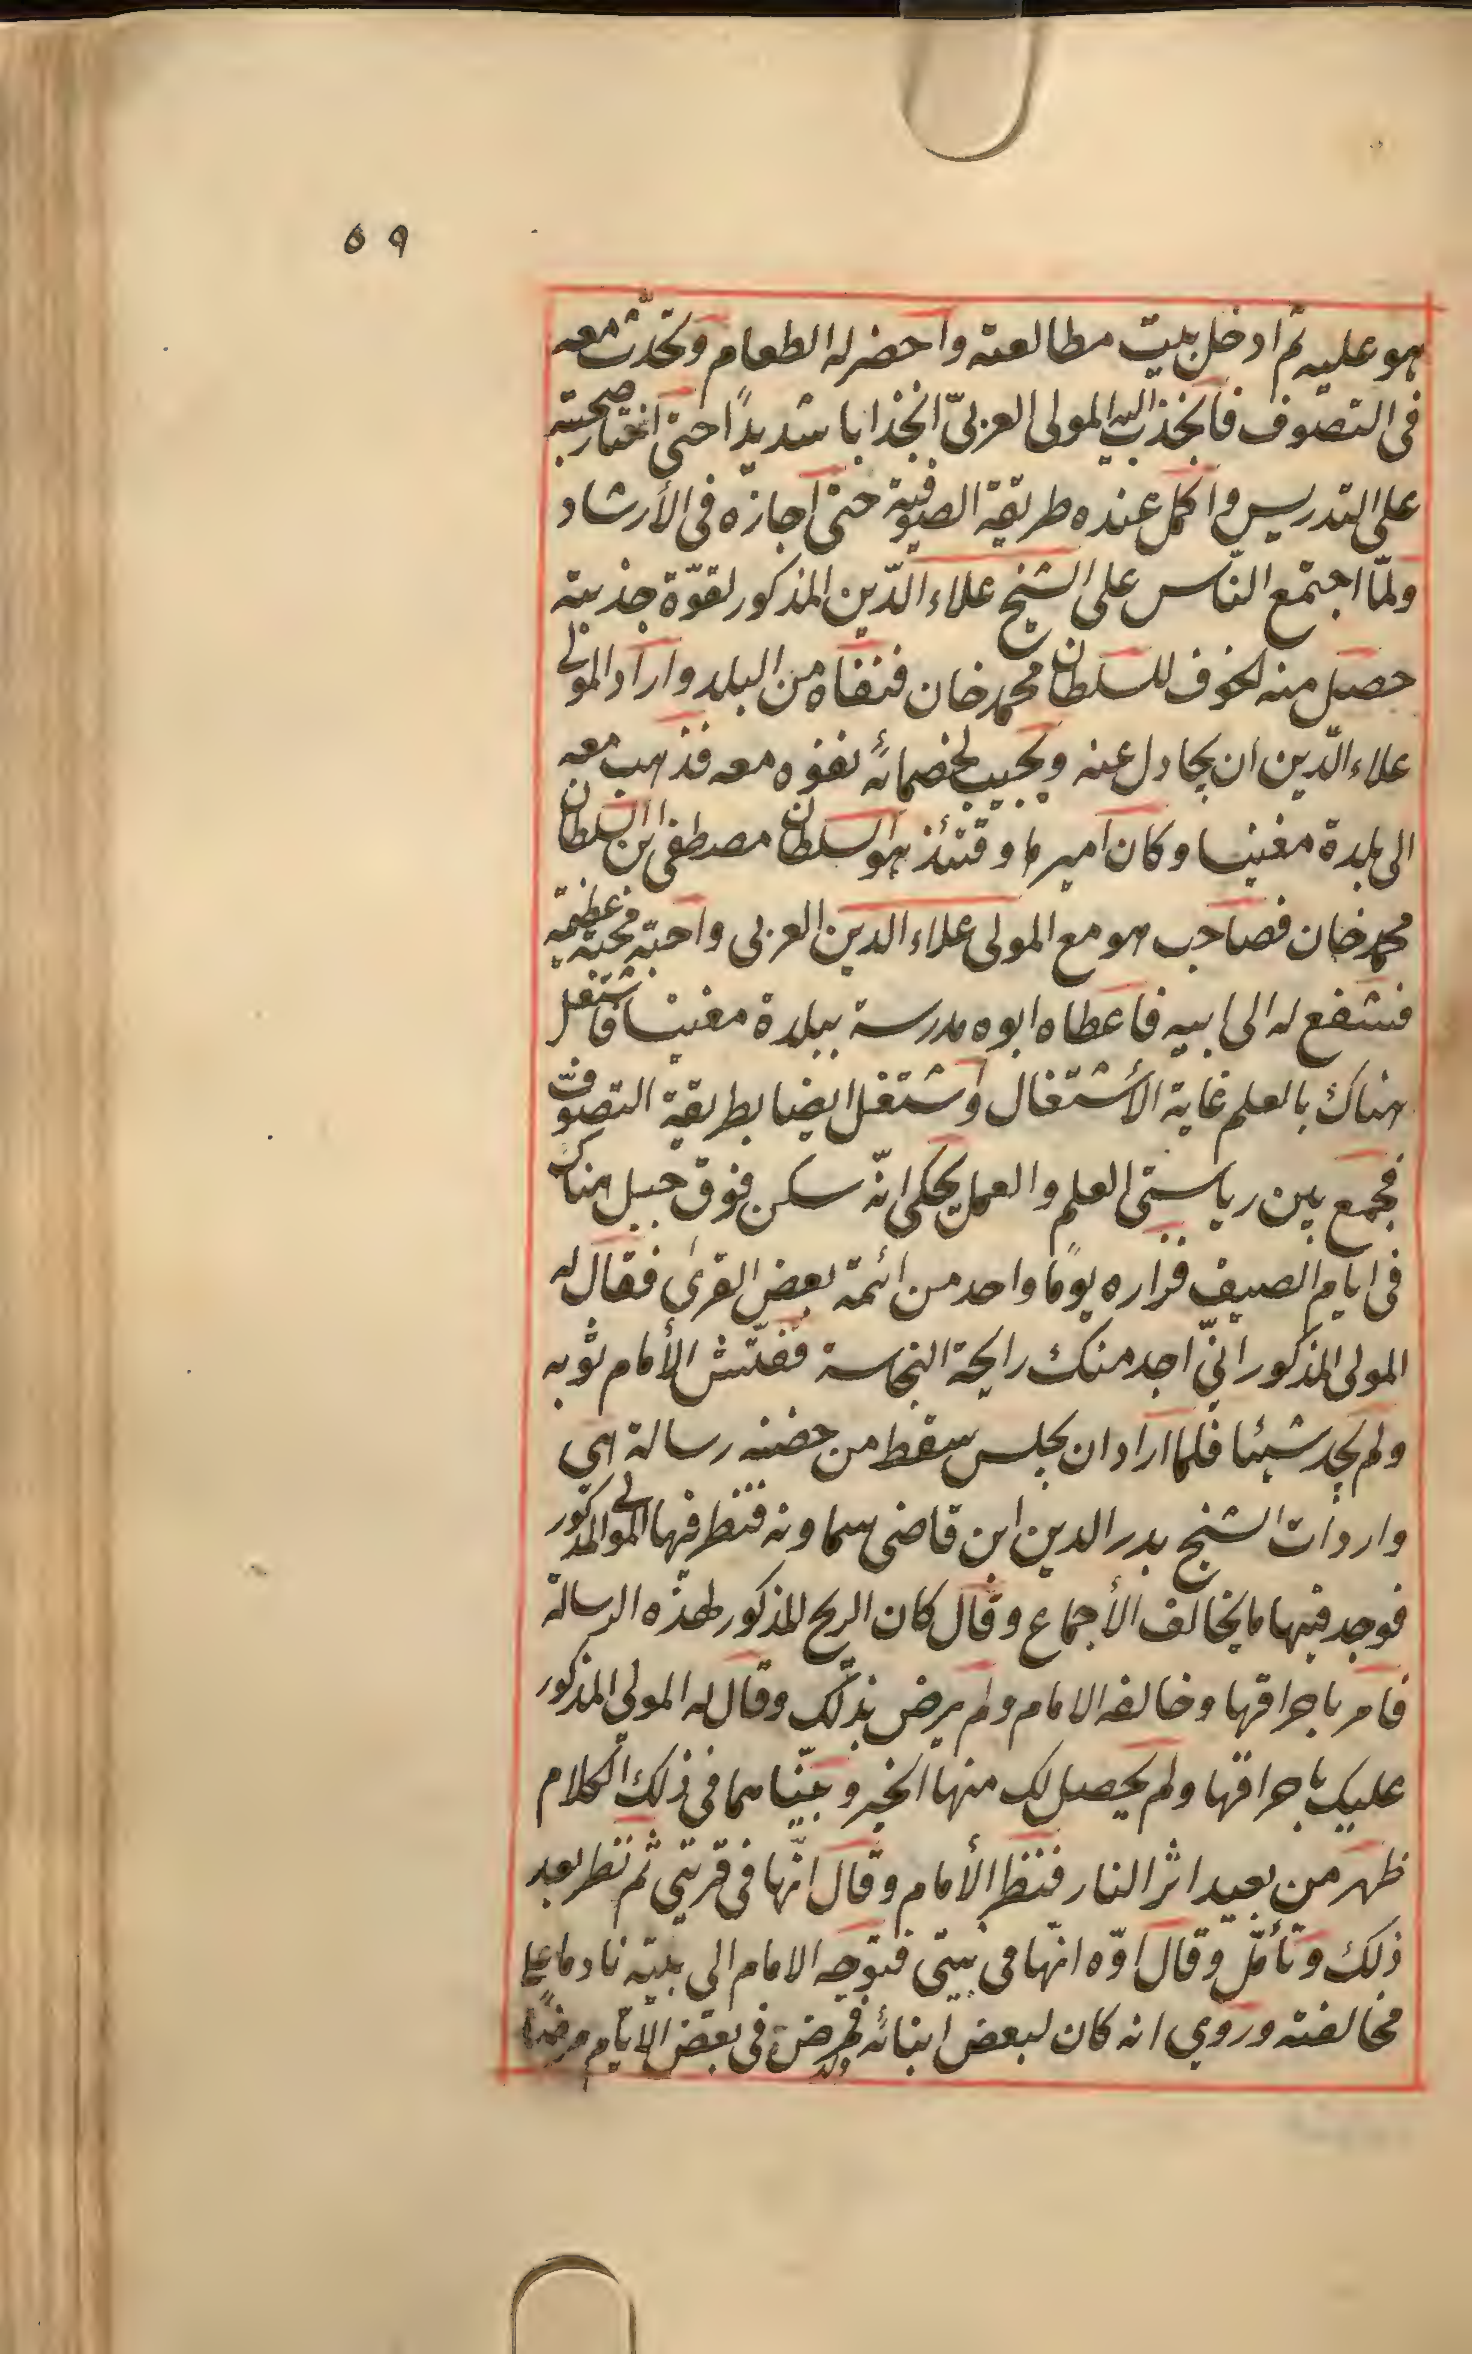 ٥٩
هو عليه ثم ادخل بيت مطالعته واحضر له الطعام وتحدّث معه
فى التصوف فانجذب اليه المولى العربىّ انجذابا شديدًا حتى اختار صحبته
على التدريس واكمل عنده طريقة الصوفية حتى اجازه فى الأرشاد
ولمّا اجتمع النّاس على الشيخ علاء الدّين المذكور لقوّة جذبته
حصل منه الخوف للسلطان محمد خان فنفاه من البلد واراد المولى
علاء الدّين ان يجادل عنه ويجيب لخصمائه نفوه معه فذهب معه
الى بلدة مغنيسا وكان اميرها وقتئذ هو السلطان مصطفى ابن السلطان
محمد خان فصاحب هو مع المولى علاء الدين العربى واحبّه محبة عظيمة
فشفع له الى ابيه فاعطاه ابوه مدرسة ببلدة مغنيسا فاشتغل
هناك بالعلم غاية الأشتغال واشتغل ايضا بطريقة التصوّف
فجمع بين رياستى العلم والعمل يحكى انّه سكن فوق جبل هناك
فى ايام الصيف فزاره يومًا واحد من ائمة بعض القرى فقال له
المولى المذكور انّى اجد منك رايحة النجاسة ففتّش الأمام ثوبه
ولم يجد شيئا فلما اراد ان يجلس سقط من حضنه رسالة هى
واردات الشيخ بدر الدين ابن قاضى سماونه فنظر فيها المولى المذكور
فوجد فيها ما يخالف الأجماع وقال كان الريح المذكور لهذه الرسالة
فامر باحراقها وخالفه الامام ولم يرض بذلك وقال له المولى المذكور
عليك باحراقها ولم يحصل لك منها الخير وبينا هما فى ذلك الكلام
ظهر من بعيد اثر النار فنظر الأمام وقال انّها فى قريتى ثم نظر بعد
ذلك وتأمّل وقال اوّه انّها فى بيتى فتوجه الامام الى بيته نادما على
مخالفته وروى انه كان لبعض ابنائه ولد فمرض فى بعض الايّام مرضًا